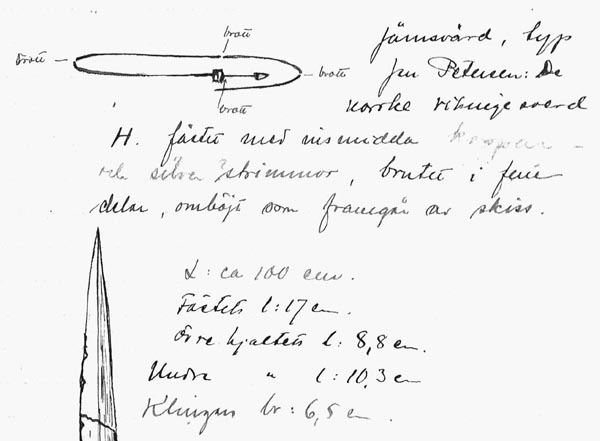 brott
brott
brott
brott
järnsvärd, typ
fru Petersen: De
norske vikingesverd
H. fästet med nismidda koppar-
och silverstrimmor, brutet i fem
delar, omböjt som framgår av skiss.
L: ca 100 cm.
Fästets l: 17 cm.
Övre hjaltets l: 8,8 cm.
Undre " l: 10,3 cm
Klingans br: 6,5 cm.